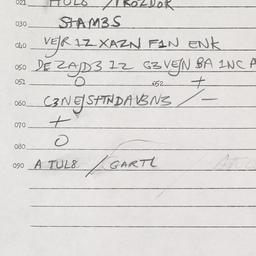 021 HOLO /TROZDOR
030 STAM3S
040 VE/R 1Z XAZN F1N ENK
050 DEZA/D3 1Z G3VE/N BA 1NC A
051 O 052 +
060 C3NE/STTNDAVBN3 / —
070 +
080 O
090 A TUL8 / GARTL